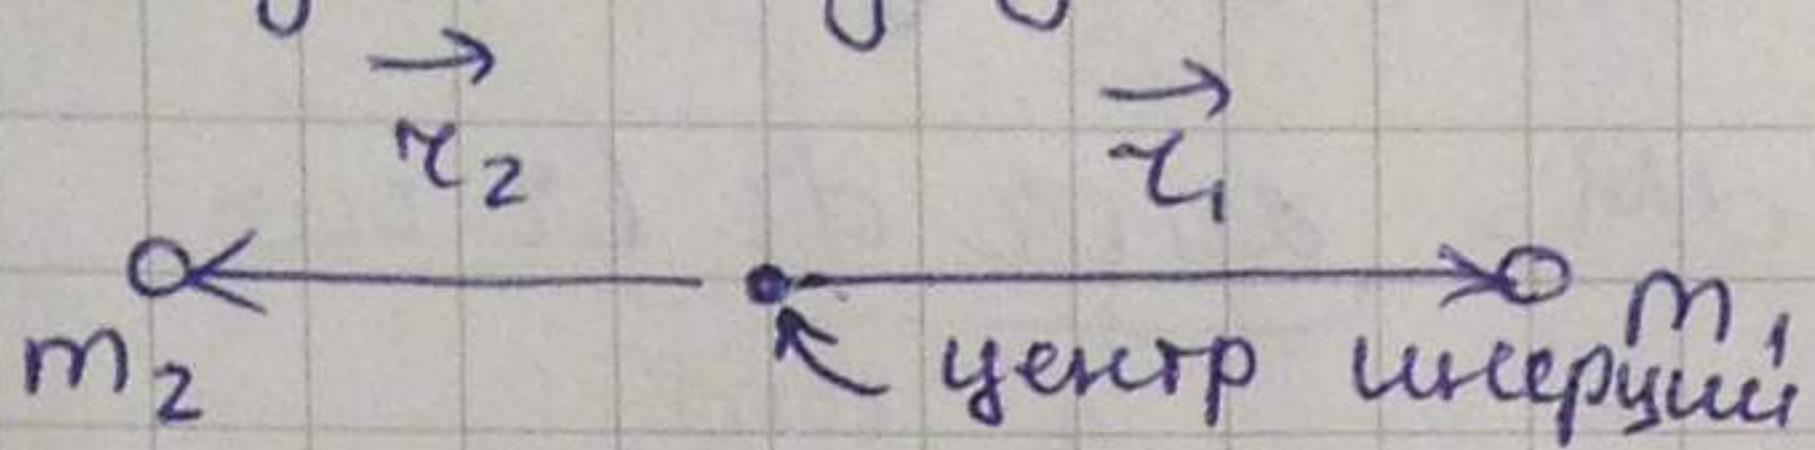 r⃗₂ r⃗₁
m₂ центр инерции m₁